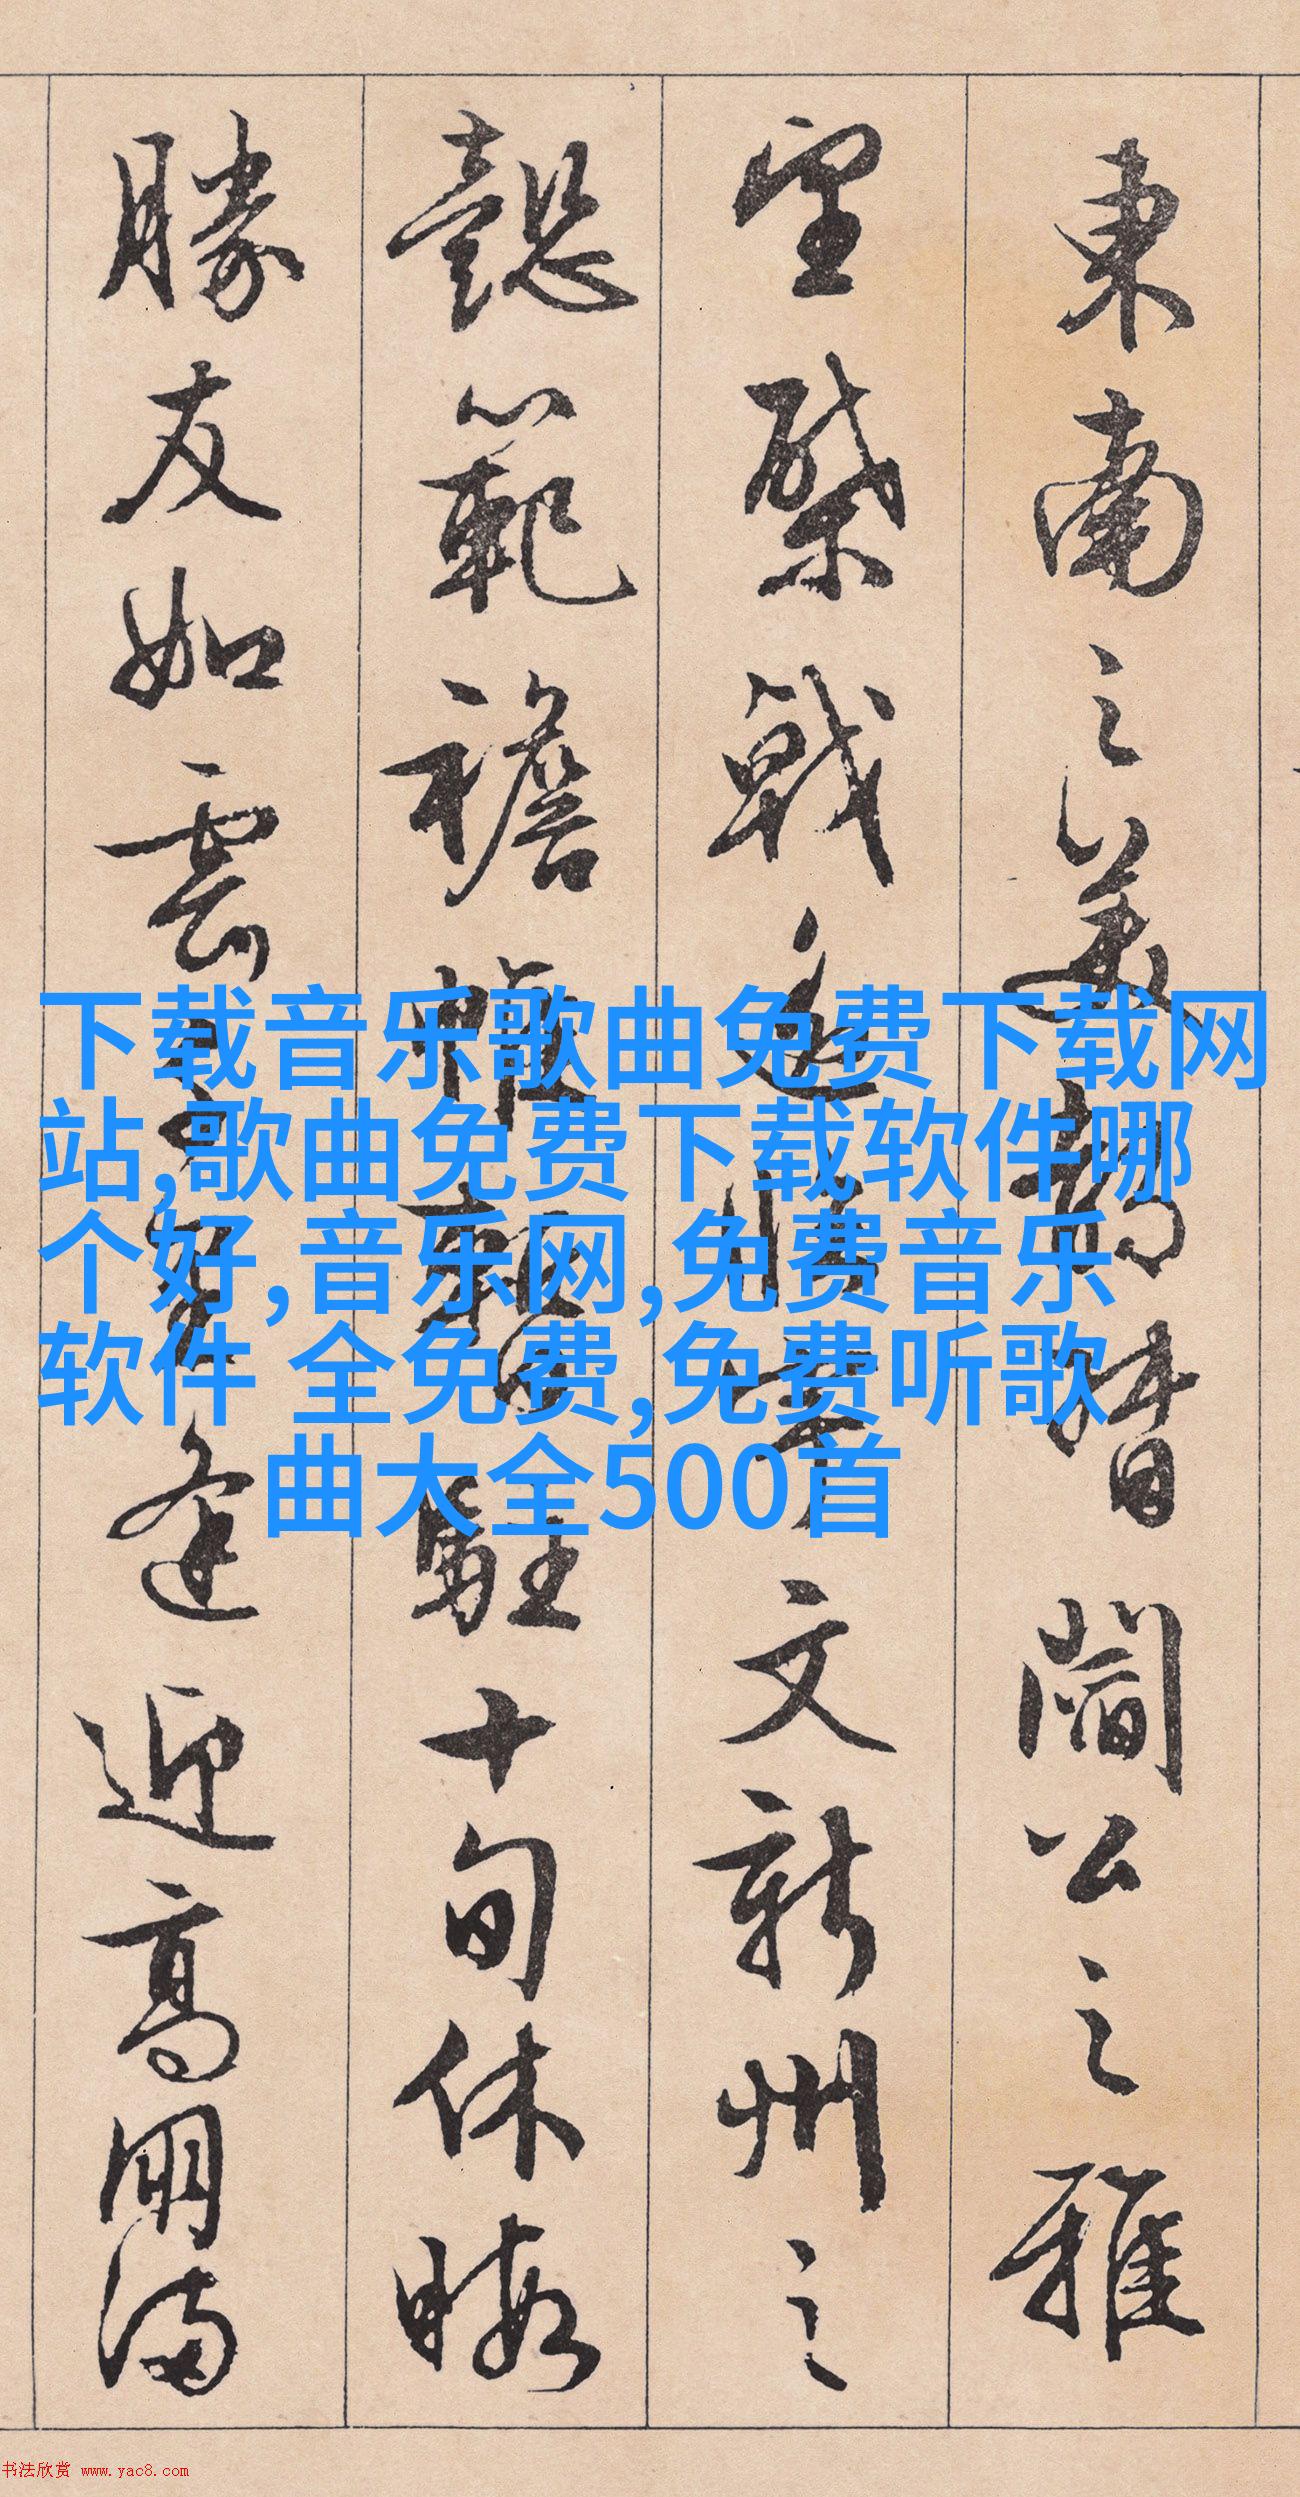 東南之美都督閻公之雅
望棨戟遙臨宇文新州之
懿範襜帷暫駐十旬休暇
勝友如雲千里逢迎高朋滿
下载音乐歌曲免费下载网
站,歌曲免费下载软件哪
个好,音乐网,免费音乐
软件 全免费,免费听歌
曲大全500首
书法欣赏 www.yac8.com